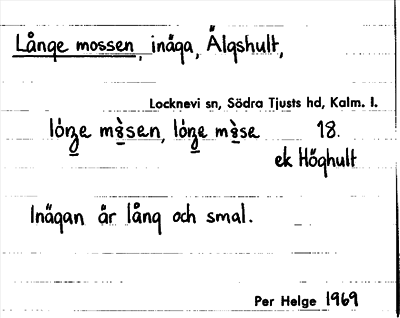 Långe mossen, inäga, Älgshult,
Locknevi sn, Södra Tjusts hd, Kalm. l.
lóŋe mɘ̀sen, lóŋe mɘ̀sa 18.
ek Höghult
Inägan är lång och smal.
Per Helge 1969